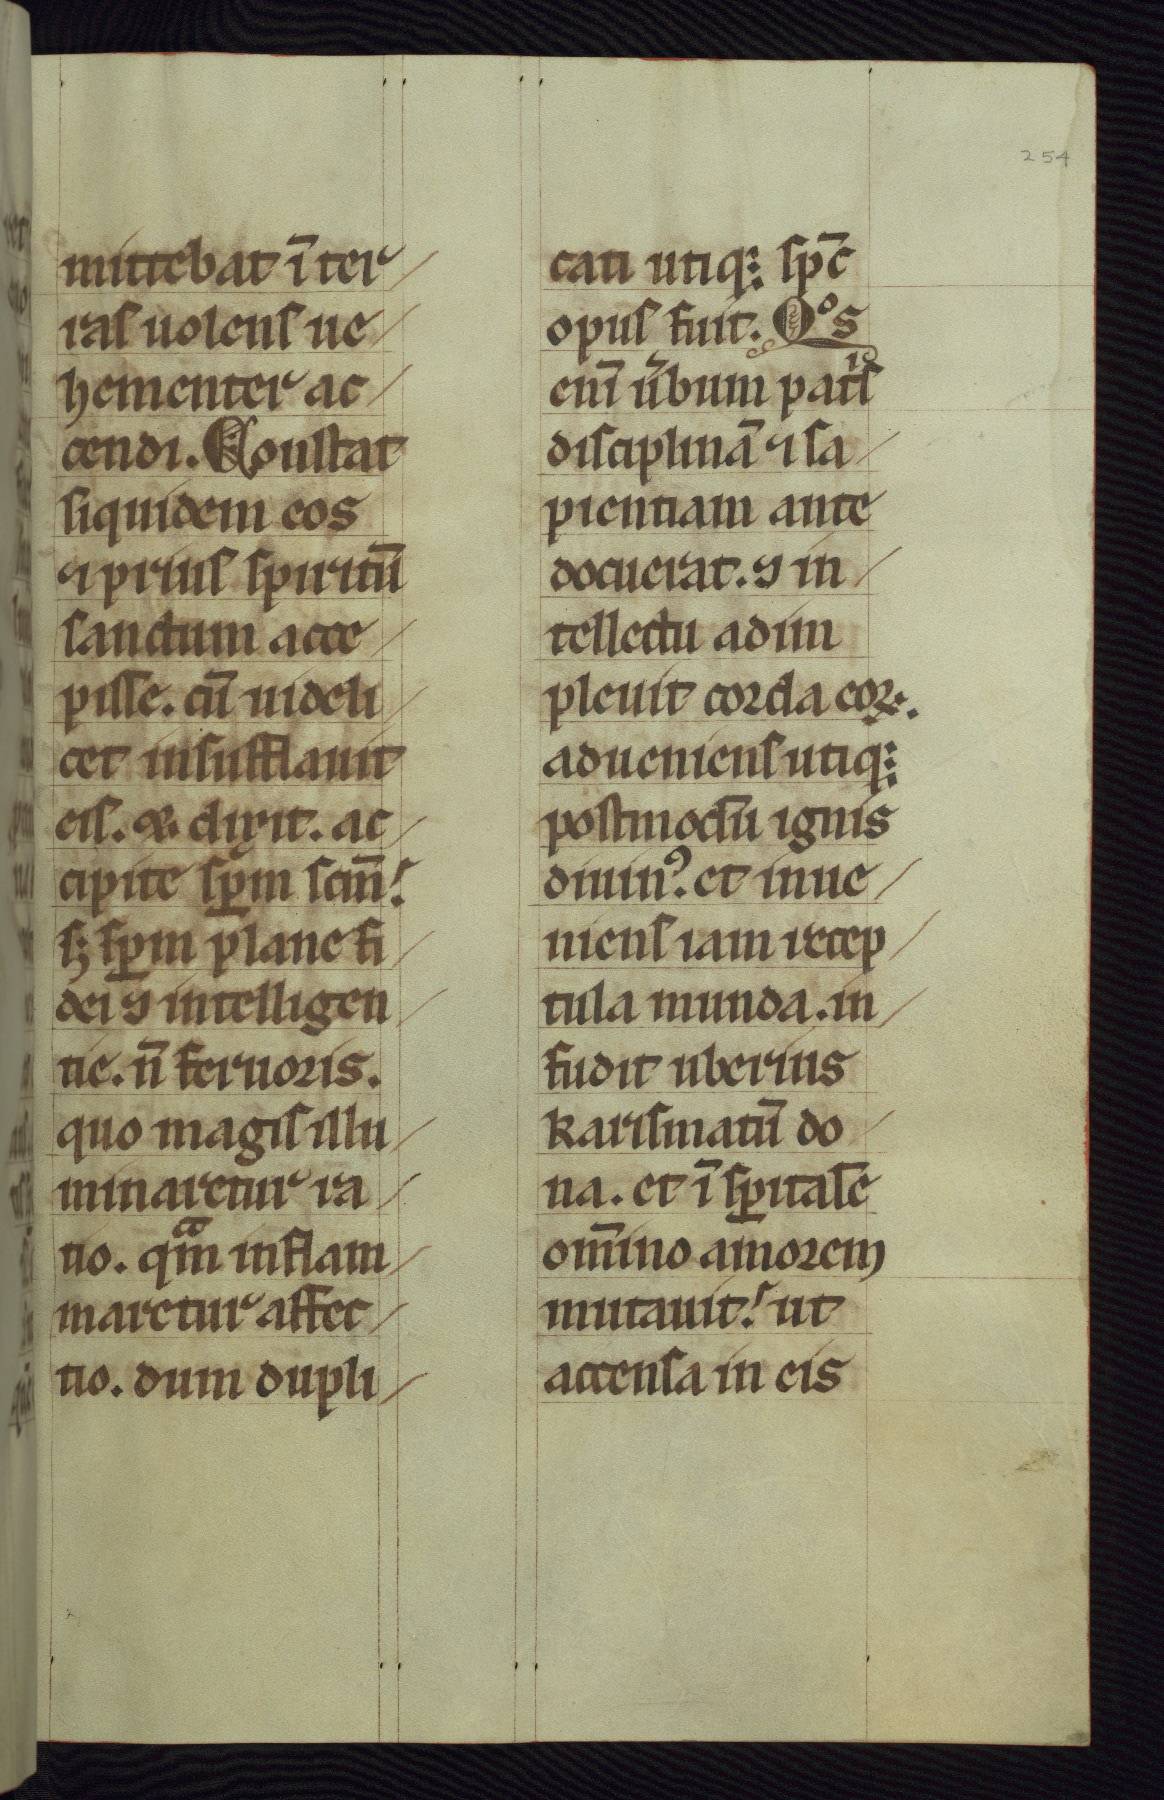 254
mittebat ī ter
ras uolens ue
hementer ac
cendi. Constat
siquidem eos
⁊ prius spiritū
sanctum acce
pisse. cū uideli
cet insufflauit
eis. ⁊ dixit. ac
cipite sp̄m scm̄!
sꝫ sp̄m plane fi
dei ⁊ intelligen
tie. n̄ feruoris.
quo magis illu
minaretur ra
tio. qͣm inflam
maretur affec
tio. dum dupli
cati utiqꝫ sp̄c
opus fuit. Qͦs
enī u̾bum patⁱs
disciplinā ⁊ sa
pientiam ante
docuerat. ⁊ in
tellectu adim
pleuit corda eoꝝ.
adueniens utiqꝫ
postmodū ignis
diuinꝰ. et inue
niens iam recep
tula munda. in
fudit uberius
karismatū do
na. et ī sp̄italē
om̄ino amorem
mutauit! ut
accensa in eis